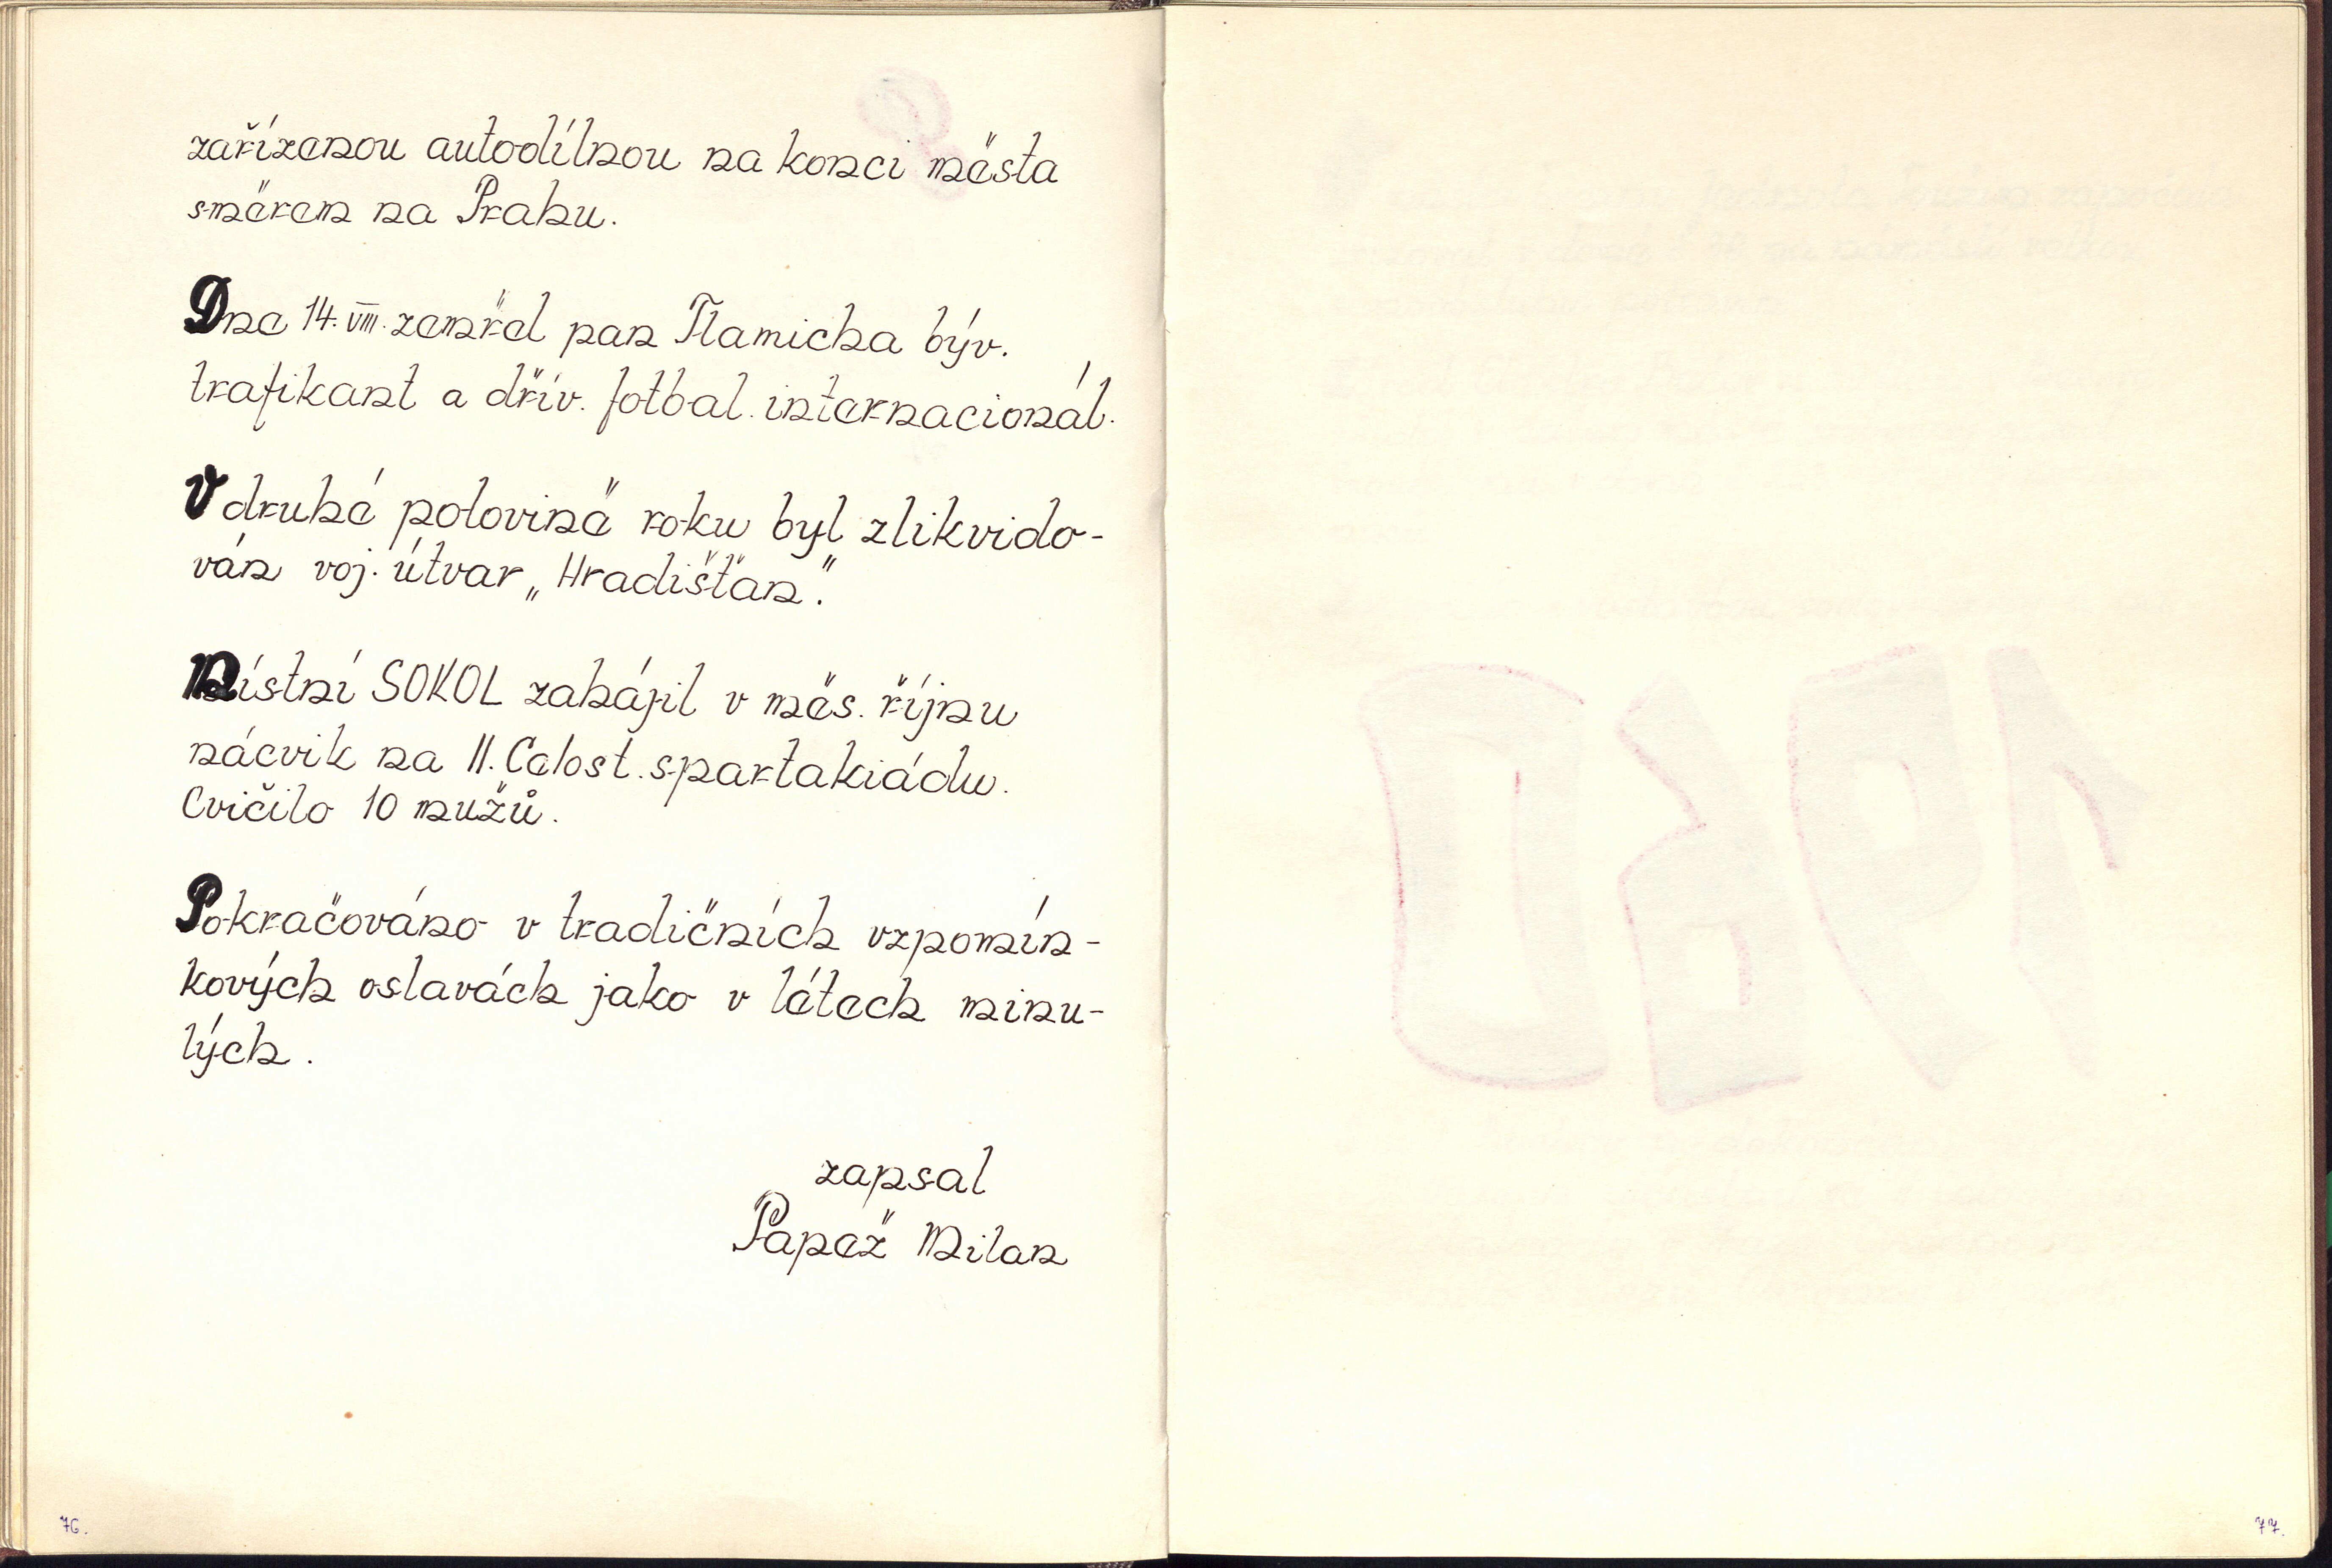 zařízenou autodílnou na konci města
směrem na Prahu.
Dne 14. VIII. zemřel pan Tlamicha býv.
trafikant a dřív. fotbal. internacionál.
V druhé polovině roku byl zlikvido-
ván voj. útvar „Hradišťan".
Místní SOKOL zahájil v měs. říjnu
nácvik na II. Celost. spartakiádu.
Cvičilo 10 mužů.
Pokračováno v tradičních vzpomín-
kových oslavách jako v létech minu-
lých.
zapsal
Papež Milan
76.
1960
77.